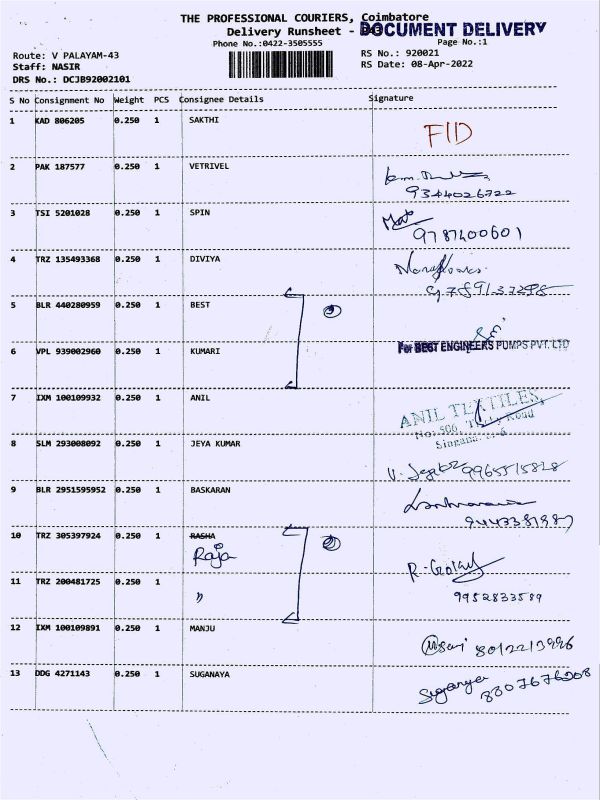 THE PROFESSIONAL COURIERS, Coimbatore
Delivery Runsheet -
DOCUMENT DELIVERY
Phone No.:0422-3505555
Page No.:1
Route: V PALAYAM-43
RS No.: 920021
Staff: NASIR
RS Date: 08-Apr-2022
DRS No.: DCJB92002101
S No Consignment No Weight PCS Consignee Details Signature
1 KAD 806205 0.250 1 SAKTHI FID
2 PAK 187577 0.250 1 VETRIVEL
9344026722
3 TSI 5201028 0.250 1 SPIN
9787400601
4 TRZ 135493368 0.250 1 DIVIYA
5 BLR 440280959 0.250 1 BEST
For BEST ENGINEERS PUMPS PVT. LTD
6 VPL 939002960 0.250 1 KUMARI
7 IXM 100109932 0.250 1 ANIL
ANIL TEXTILES,
No: 506, Road
8 SLM 293008092 0.250 1 JEYA KUMAR
9965515828
9 BLR 2951595952 0.250 1 BASKARAN
9443381987
10 TRZ 305397924 0.250 1 RASHA
Raja
11 TRZ 200481725 0.250 1 "
9952833589
12 IXM 100109891 0.250 1 MANJU
8012213996
13 DDG 4271143 0.250 1 SUGANAYA
Suganya 8807676208